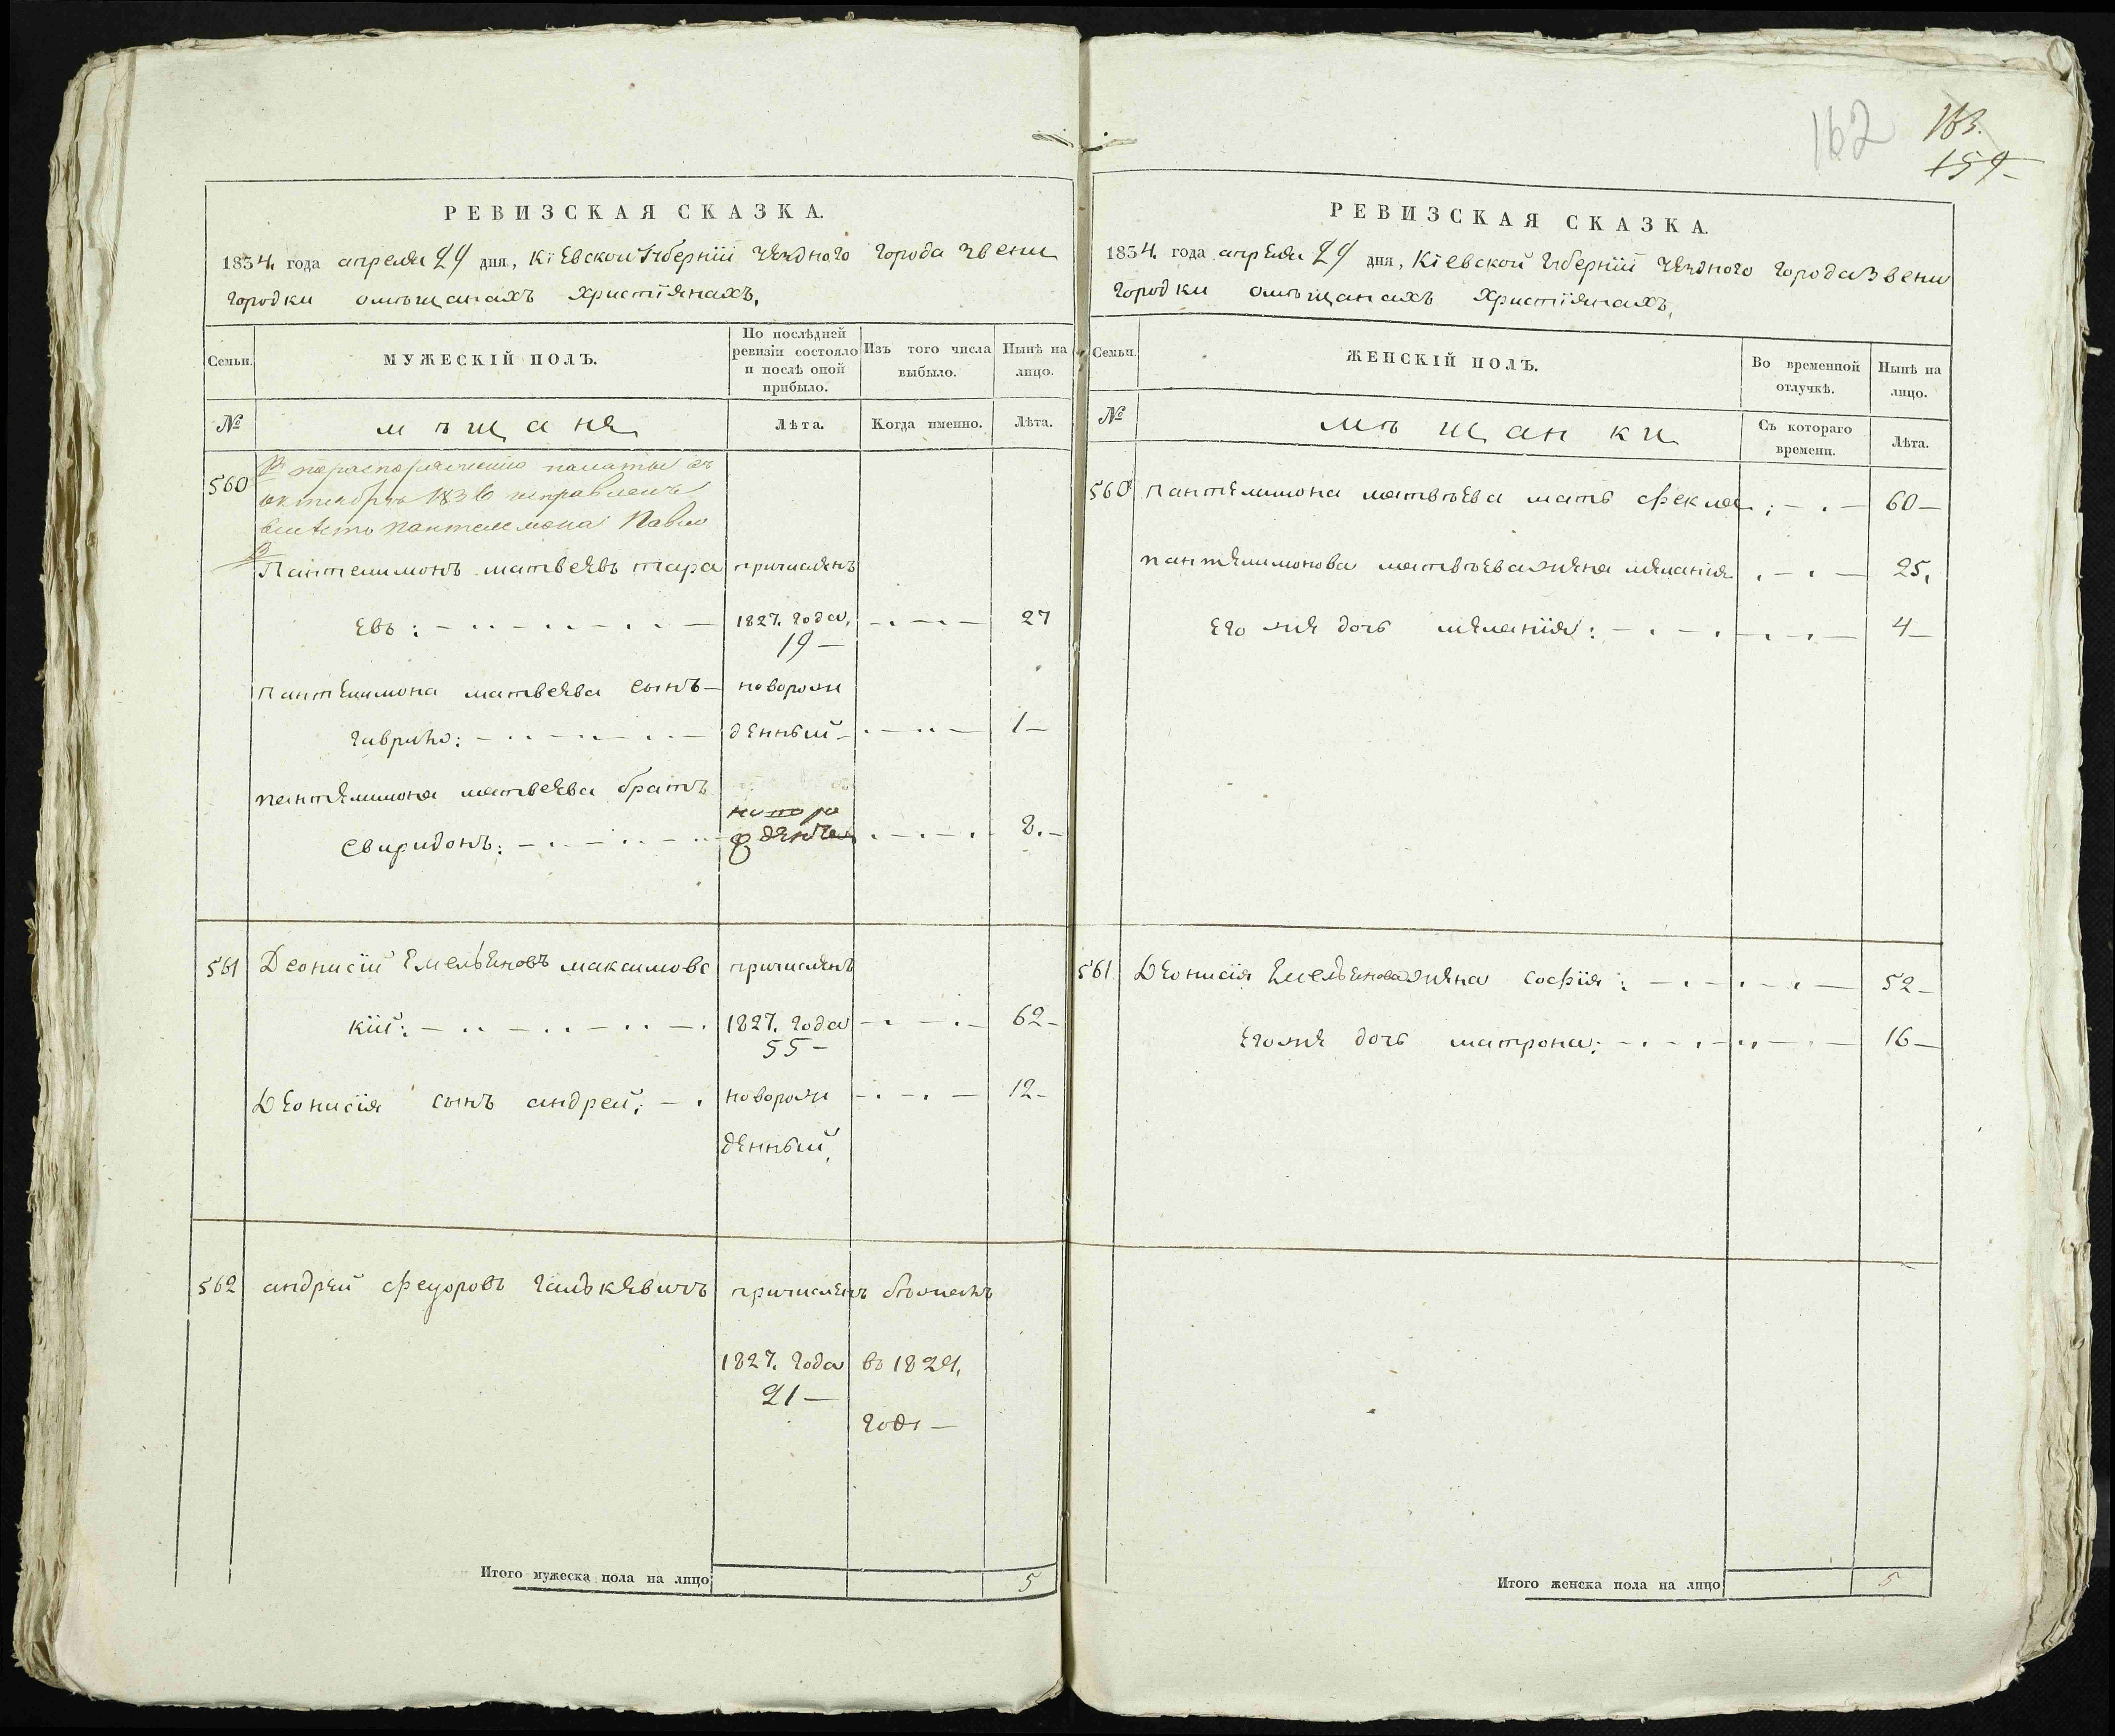 РЕВИЗСКАЯ СКАЗКА.
1834. года апреля 29 дня, Кіевской Губерніи уезднаго города Звени
городки омъщанахъ христіянахъ.
Семьи.
МУЖЕСКІЙ ПОЛЪ.
По послѣдней ревизіи состояло и послѣ оной прибыло.
Изъ того числа выбыло.
Нынѣ на лицо.
№
мъщане
Лѣта.
Когда именно.
Лѣта.
560
по распоряжению палаты
октября 1836 исправлено
вместо Пантелемона Павло
Пантелимонъ матвеевъ тара причисленъ
евъ: 1827. года, 27
19
пантелимона матвеева сынъ новорож
гаврило: денный 1
пантелимона матвеева братъ
Свиридонъ: 8 2.
561 Деонисій Емельеновъ максимовс причисленъ
кій: 1827. года 62
55
Деонисія сынъ андрей: новорож 12
денный,
562 андрей Феодоровъ Галькевичъ причисленъ
1827. года въ 1829.
21
годе
Итого мужеска пола на лицо 5
162
163.
159
РЕВИЗСКАЯ СКАЗКА.
1834. года апреля 29 дня, Кіевской Губерніи уезднаго города Звени
городки омъщанахъ христіянахъ,
Семьи.
ЖЕНСКІЙ ПОЛЪ.
Во временной отлучкѣ.
Нынѣ на лицо.
№
мъщанки
Съ котораго времени.
Лѣта.
560 Пантелимона матвъева мать Фекла: 60
пантелимонова матвъева жена меланія 25.
его же дочь меланія: 4
561 Деонисія Емельенова жена софія: 52
егоже дочь матрона: 16
Итого женска пола на лицо 5